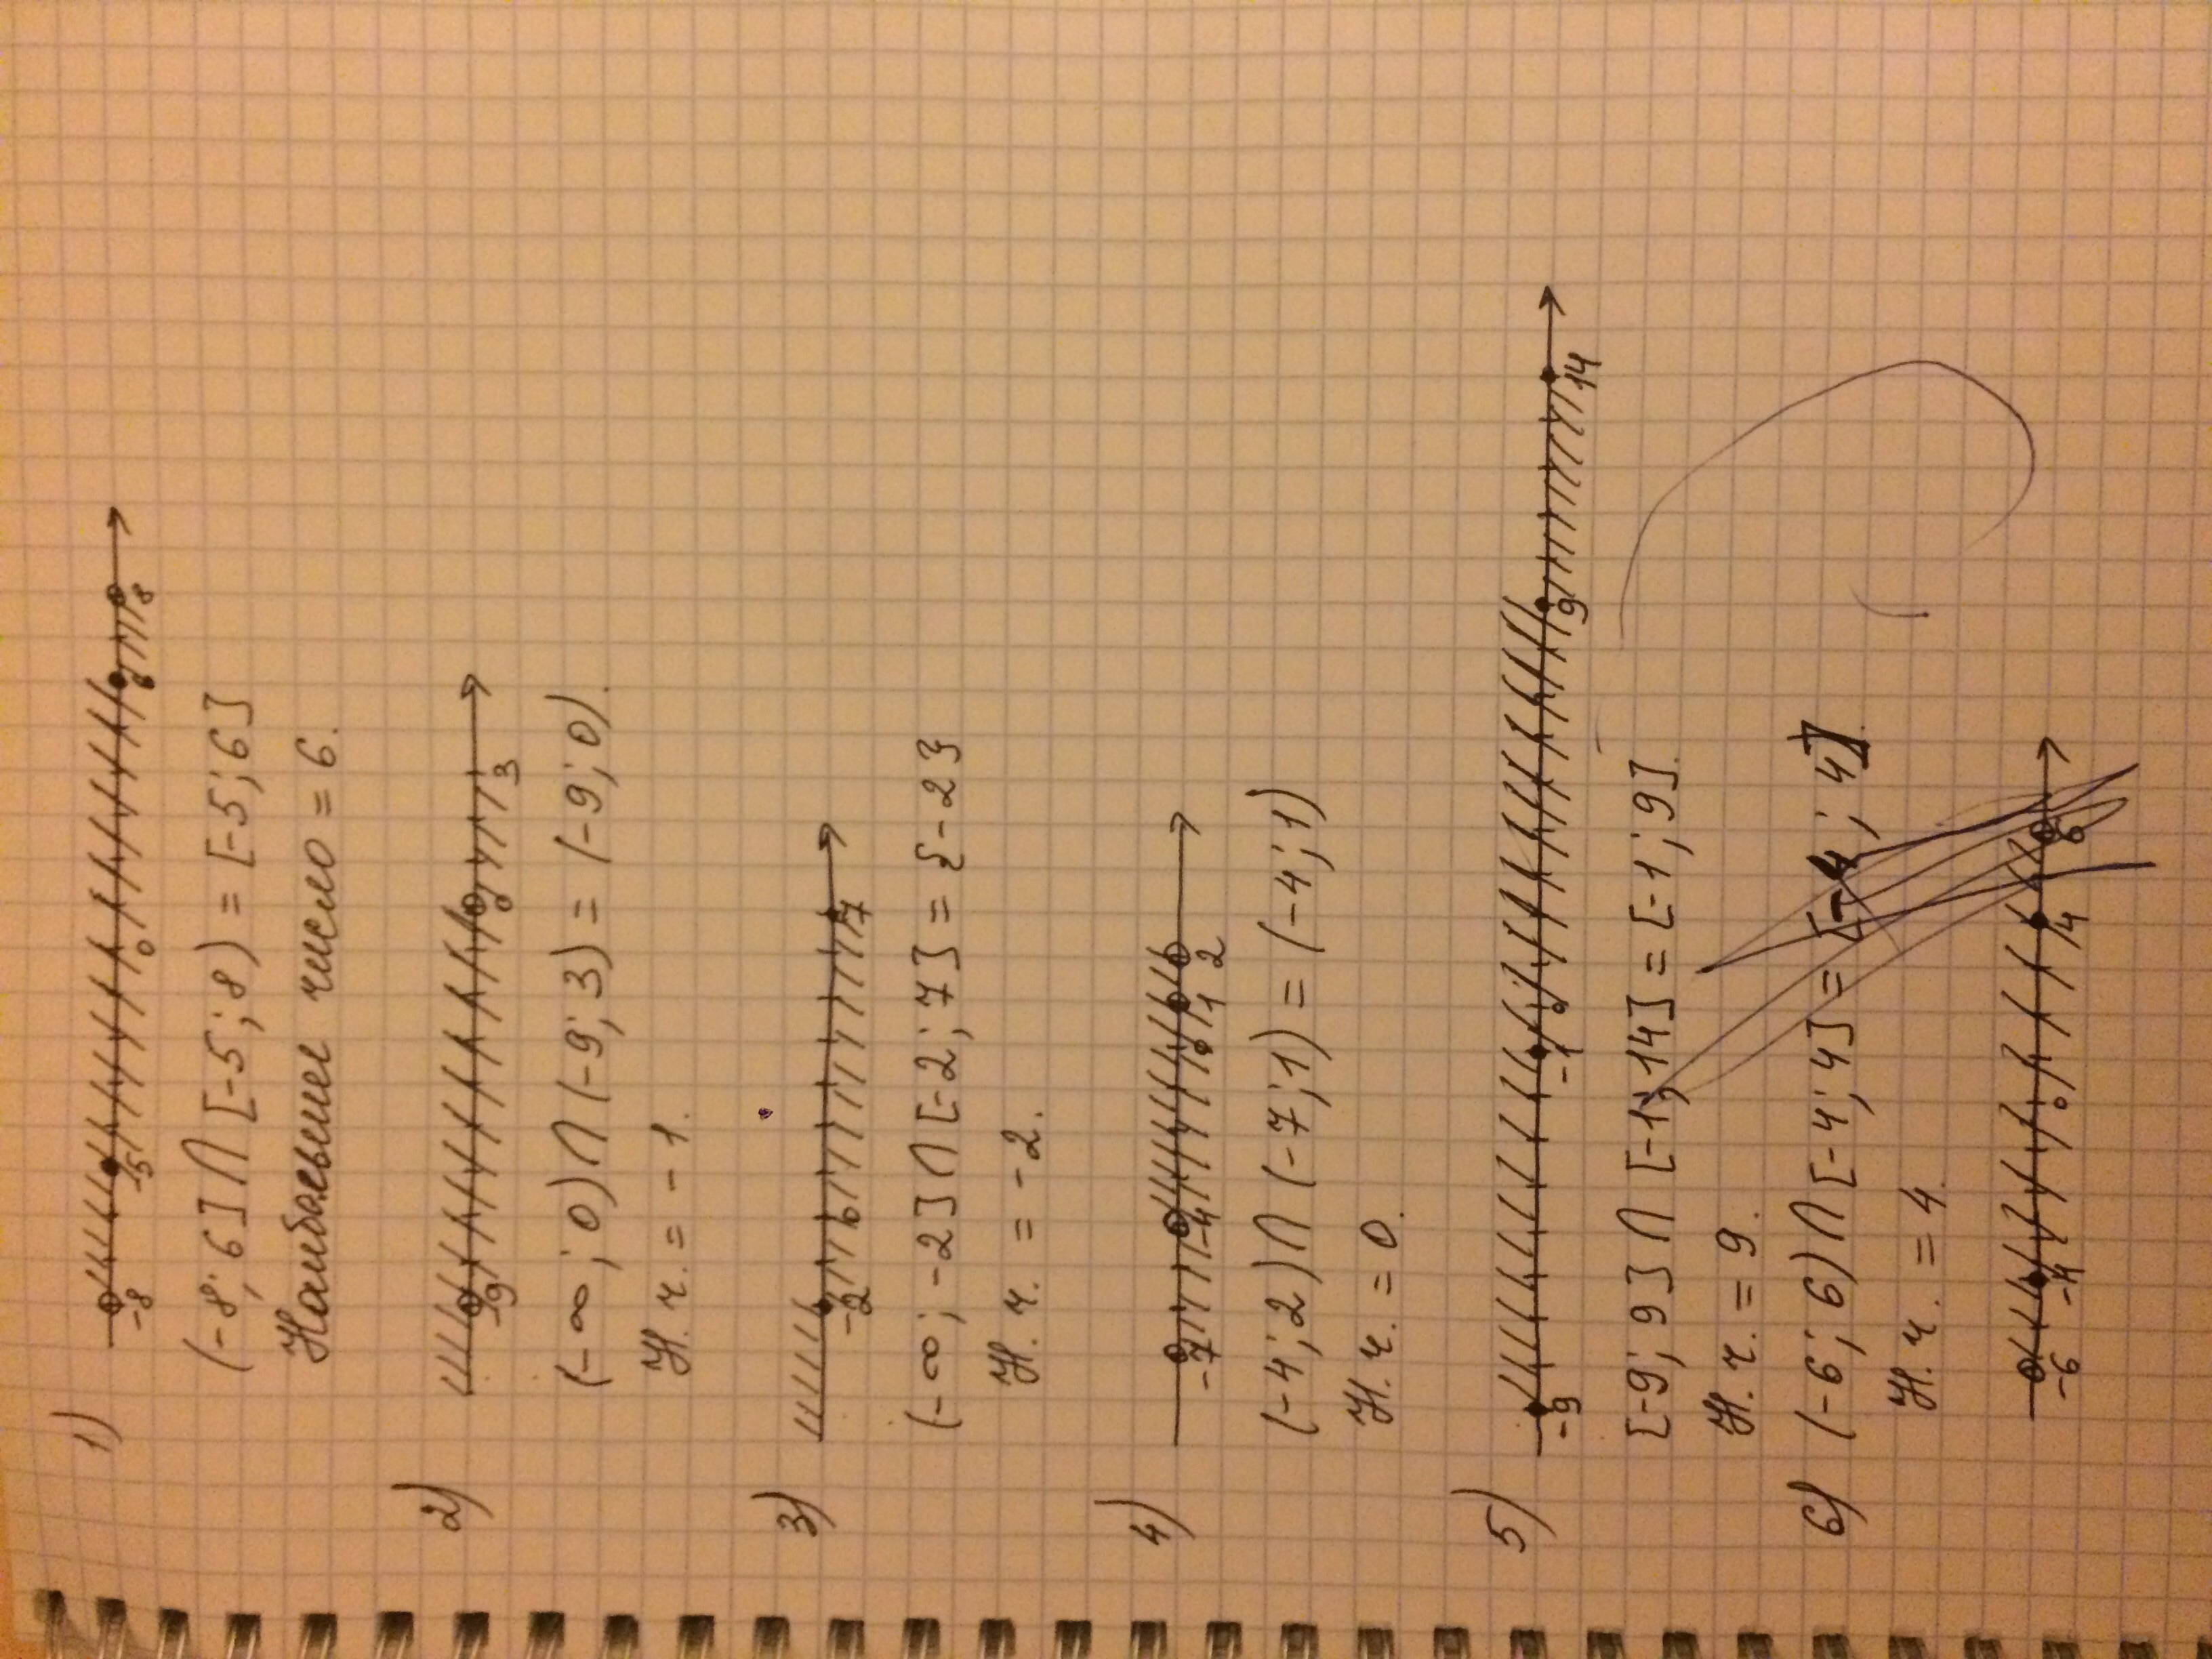 1)
-8 -5 0 6 8
(-8; 6] ∩ [-5; 8) = [-5; 6]
Наибольшее число = 6.
2)
-9 0 3
(-∞; 0) ∩ (-9; 3) = (-9; 0).
Н. ч. = -1.
3)
-2 0 7
(-∞; -2] ∩ [-2; 7] = {-2}
Н. ч. = -2.
4)
-7 -4 0 1 2
(-4; 2) ∩ (-7; 1) = (-4; 1)
Н. ч. = 0.
5)
-9 -1 0 9 14
[-9; 9] ∩ [-1; 14] = [-1; 9].
Н. ч. = 9.
6) (-6; 6) ∩ [-4; 4] = [-4; 4].
Н. ч. = 4.
-6 -4 0 4 6